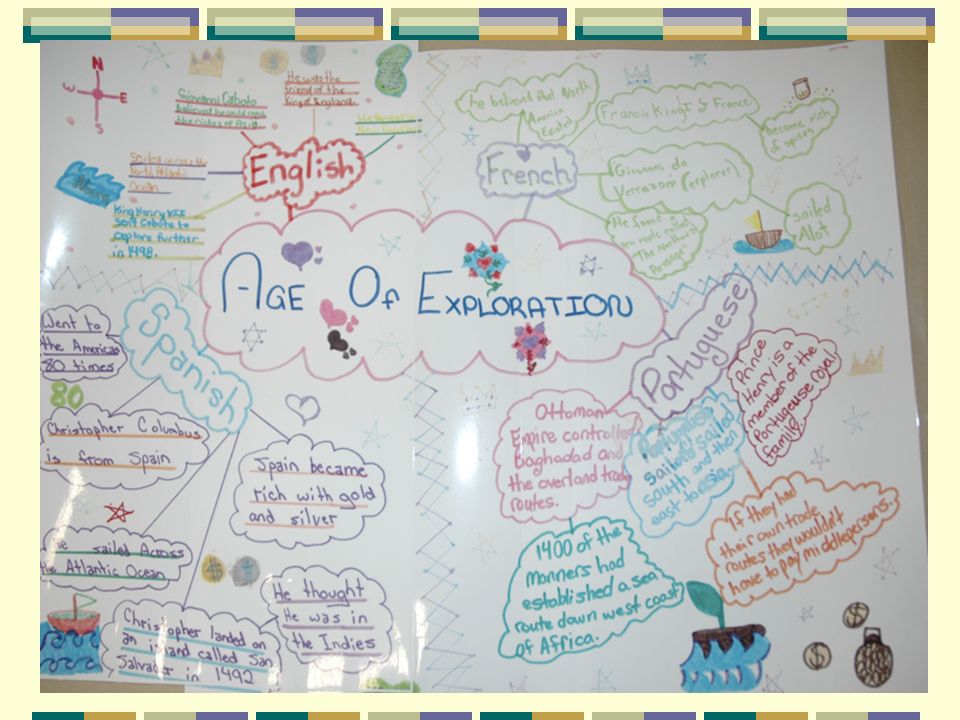 AGE OF EXPLORATION
N
W
E
S
English
Giovanni Caboto
believed he could
the riches of Asia
He was the
friend of the
King of England.
Sailed across the
North Atlantic
Ocean
King Henry VII
sent Caboto to
explore further
in 1498.
French
he believed that North
America
Existed
Francis King I of France
become rich
of spices
Giovanni da
Verrazom (explorer)
sailed
Alot
He found
new route called
"The Northwest
Passage"
Spanish
Went to
the Americas
80 times
80
Christopher Columbus
is from Spain
sailed Across
the Atlantic Ocean
Christopher landed on
an island called San
Salvador in 1492
Spain became
rich with gold
and silver
He thought
He was in
the Indies
Portuguese
Ottoman
Empire controlled
Baghdad and
the overland trade
routes.
1400 of the
manners had
established a sea
route down west coast
of Africa.
Portuguese
sailors sailed
south and then
east to Asia.
Prince
Henry is a
member of the
Portugeuse royal
familie.
If they had
their own trade
routes they wouldn't
have to pay middlepersons.